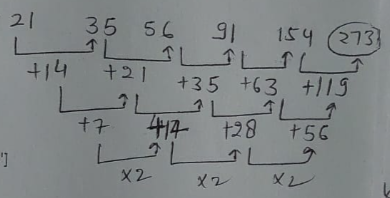 21 35 56 91 154 273
+14 +21 +35 +63 +119
+7 +14 +28 +56
x2 x2 x2